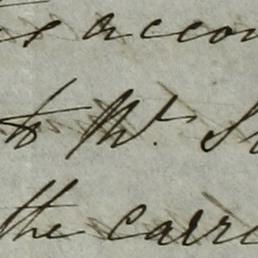 accou
to Mr. S
the carri